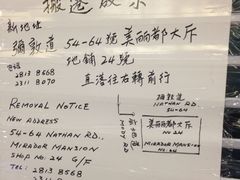 搬遷啟示
新地址
彌敦道 54-64號 美麗都大厅
地鋪 24號
電話
2813 8568
2311 8070
直落往右轉前行
REMOVAL NOTICE
NEW ADDRESS
54-64 NATHAN RD.,
MIRADOR MANSION
SHOP NO. 24 G/F
TEL:
2813 8568
MODY RD
彌敦道
NATHAN RD
54-64
美麗都大厅
NO 24
MIRADOR MANSION